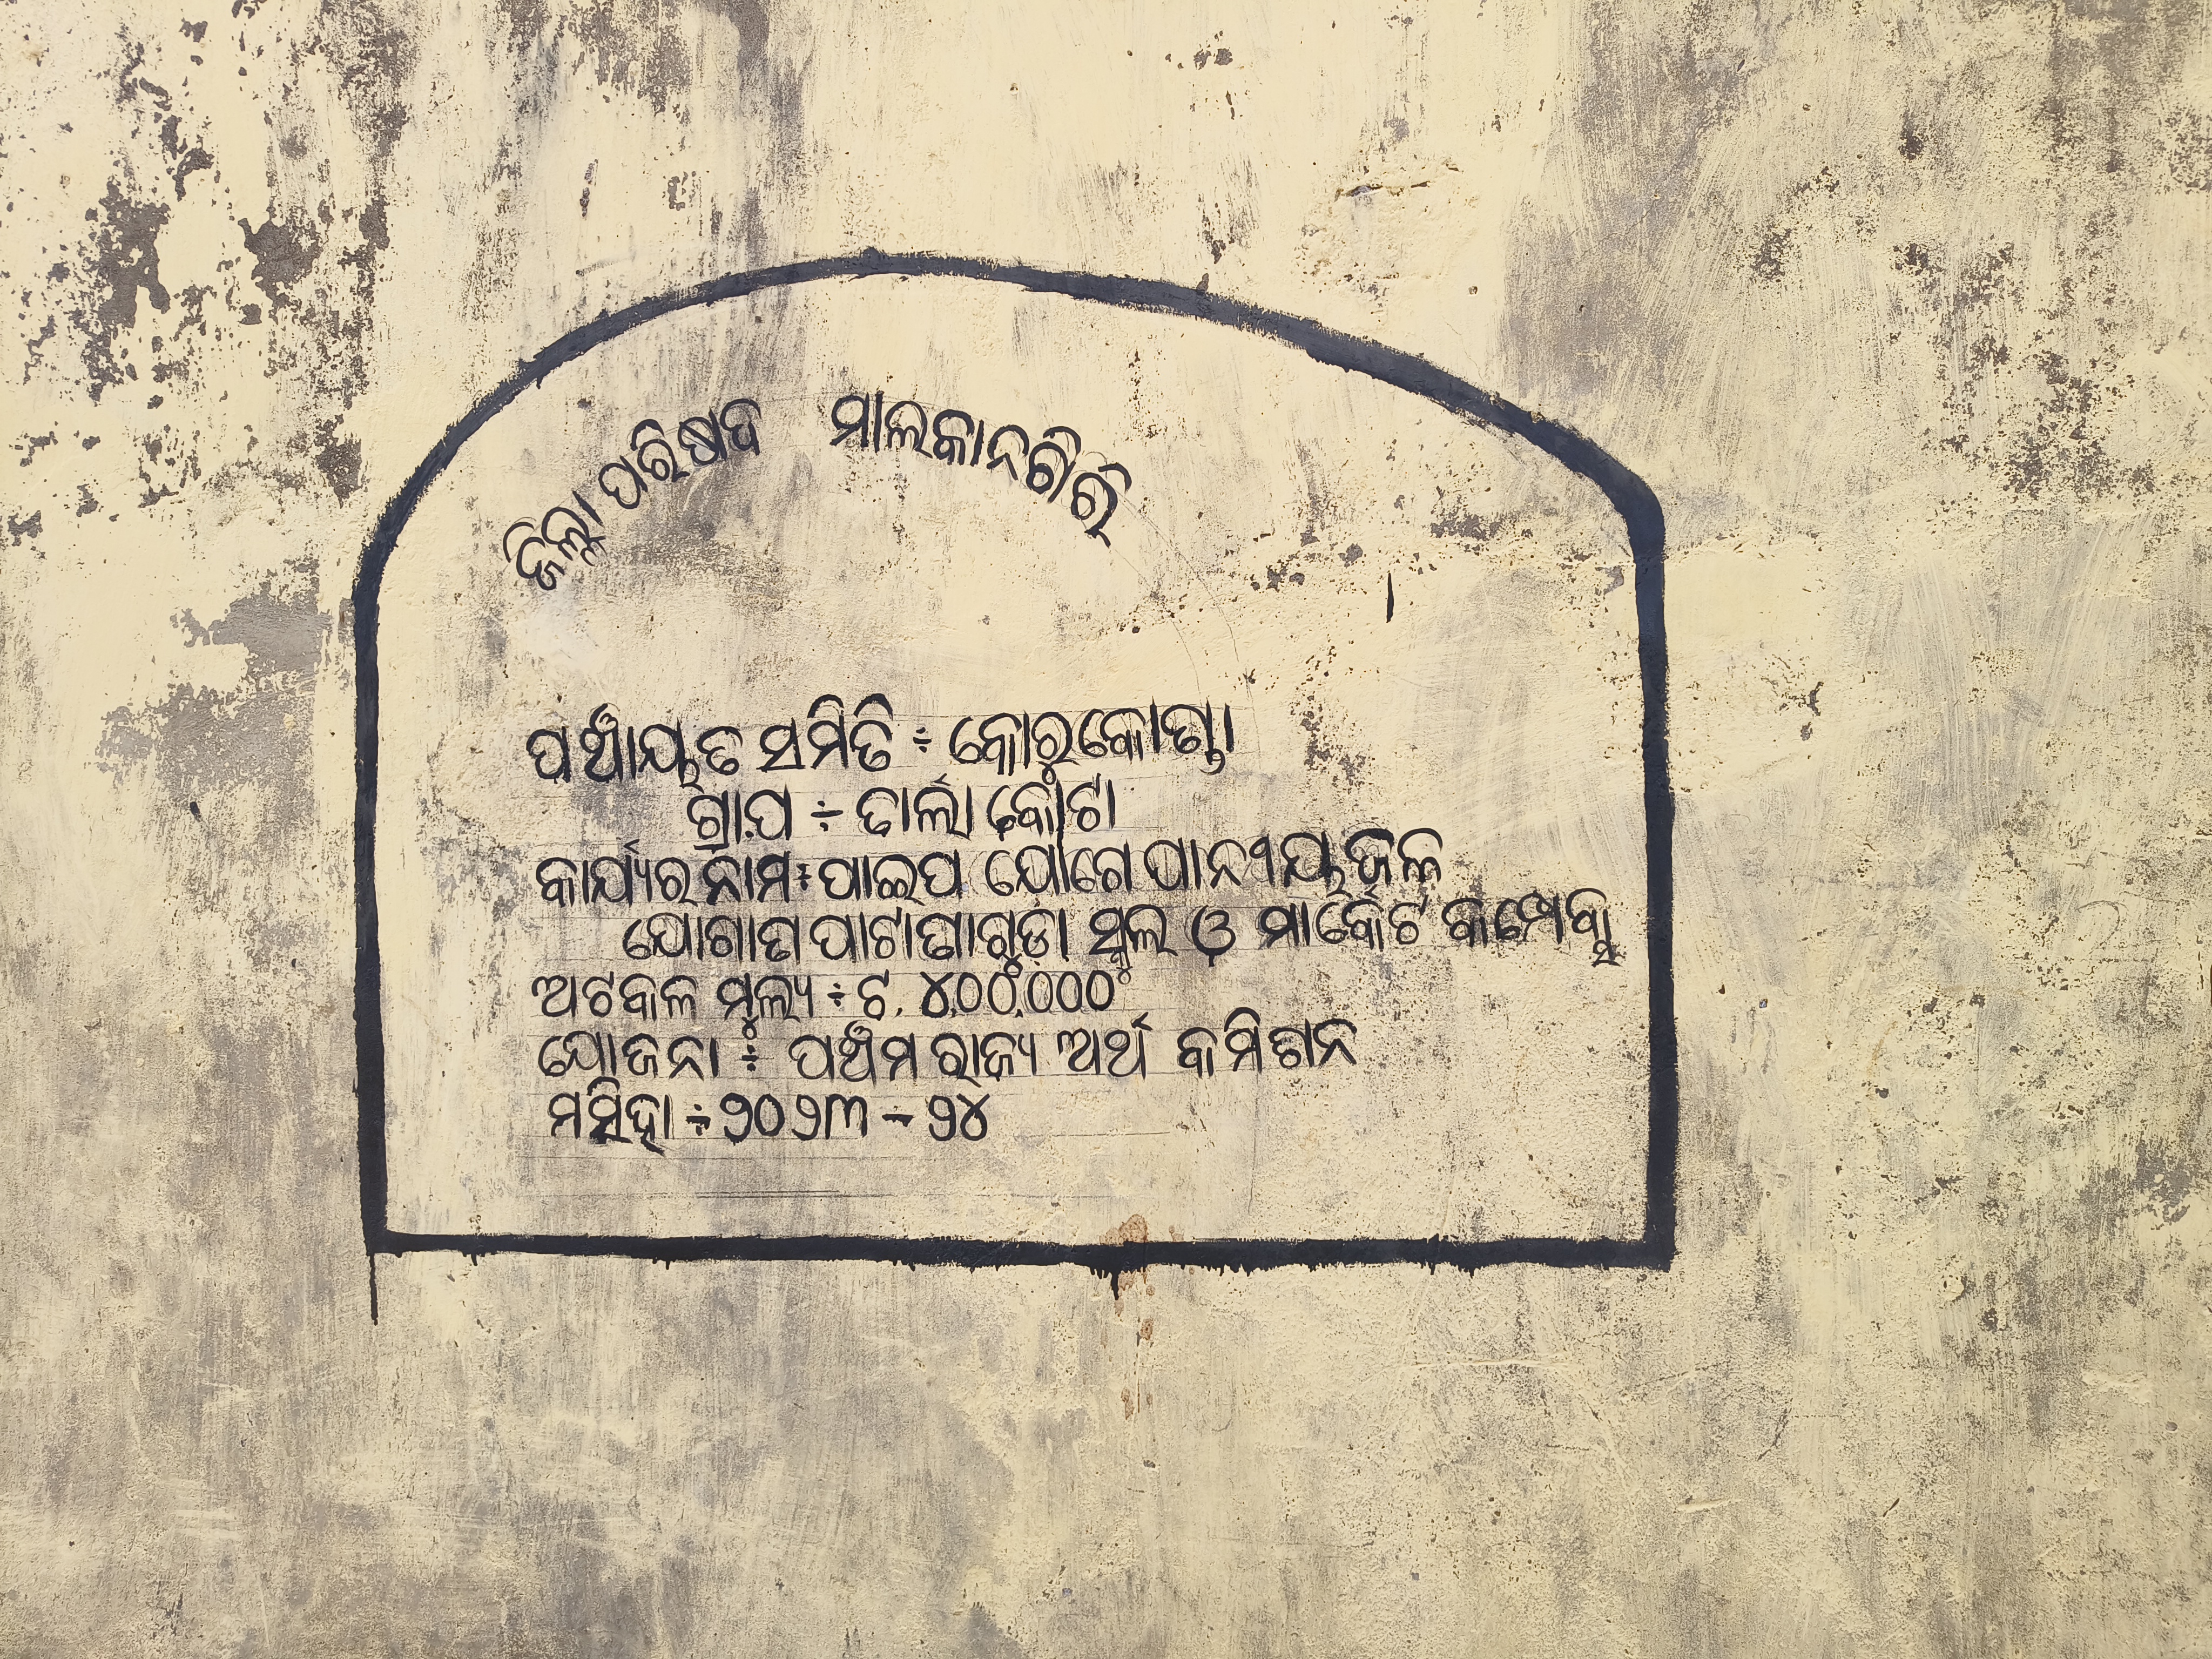 ଜିଲ୍ଲା ପରିଷଦ ମାଲକାନଗିରି
ପଞ୍ଚାୟତ ସମିତି ÷ କୋରୁକୋଣ୍ଡା
ଗ୍ରା.ପ ÷ ତାର୍ଲାକୋଟା
କାର୍ଯ୍ୟର ନାମ ÷ ପାଇପ ଯୋଗେ ପାନୀୟ ଜଳ
ଯୋଗାଣ ପାଟାପାଗୁଡ଼ା ସ୍କୁଲ ଓ ମାର୍କେଟ କମ୍ପ୍ଲେକ୍ସ
ଅଟକଳ ମୂଲ୍ୟ ÷ ଟ. ୪,୦୦,୦୦୦
ଯୋଜନା ÷ ପଞ୍ଚମ ରାଜ୍ୟ ଅର୍ଥ କମିଶନ
ମସିହା ÷ ୨୦୨୩ - ୨୪